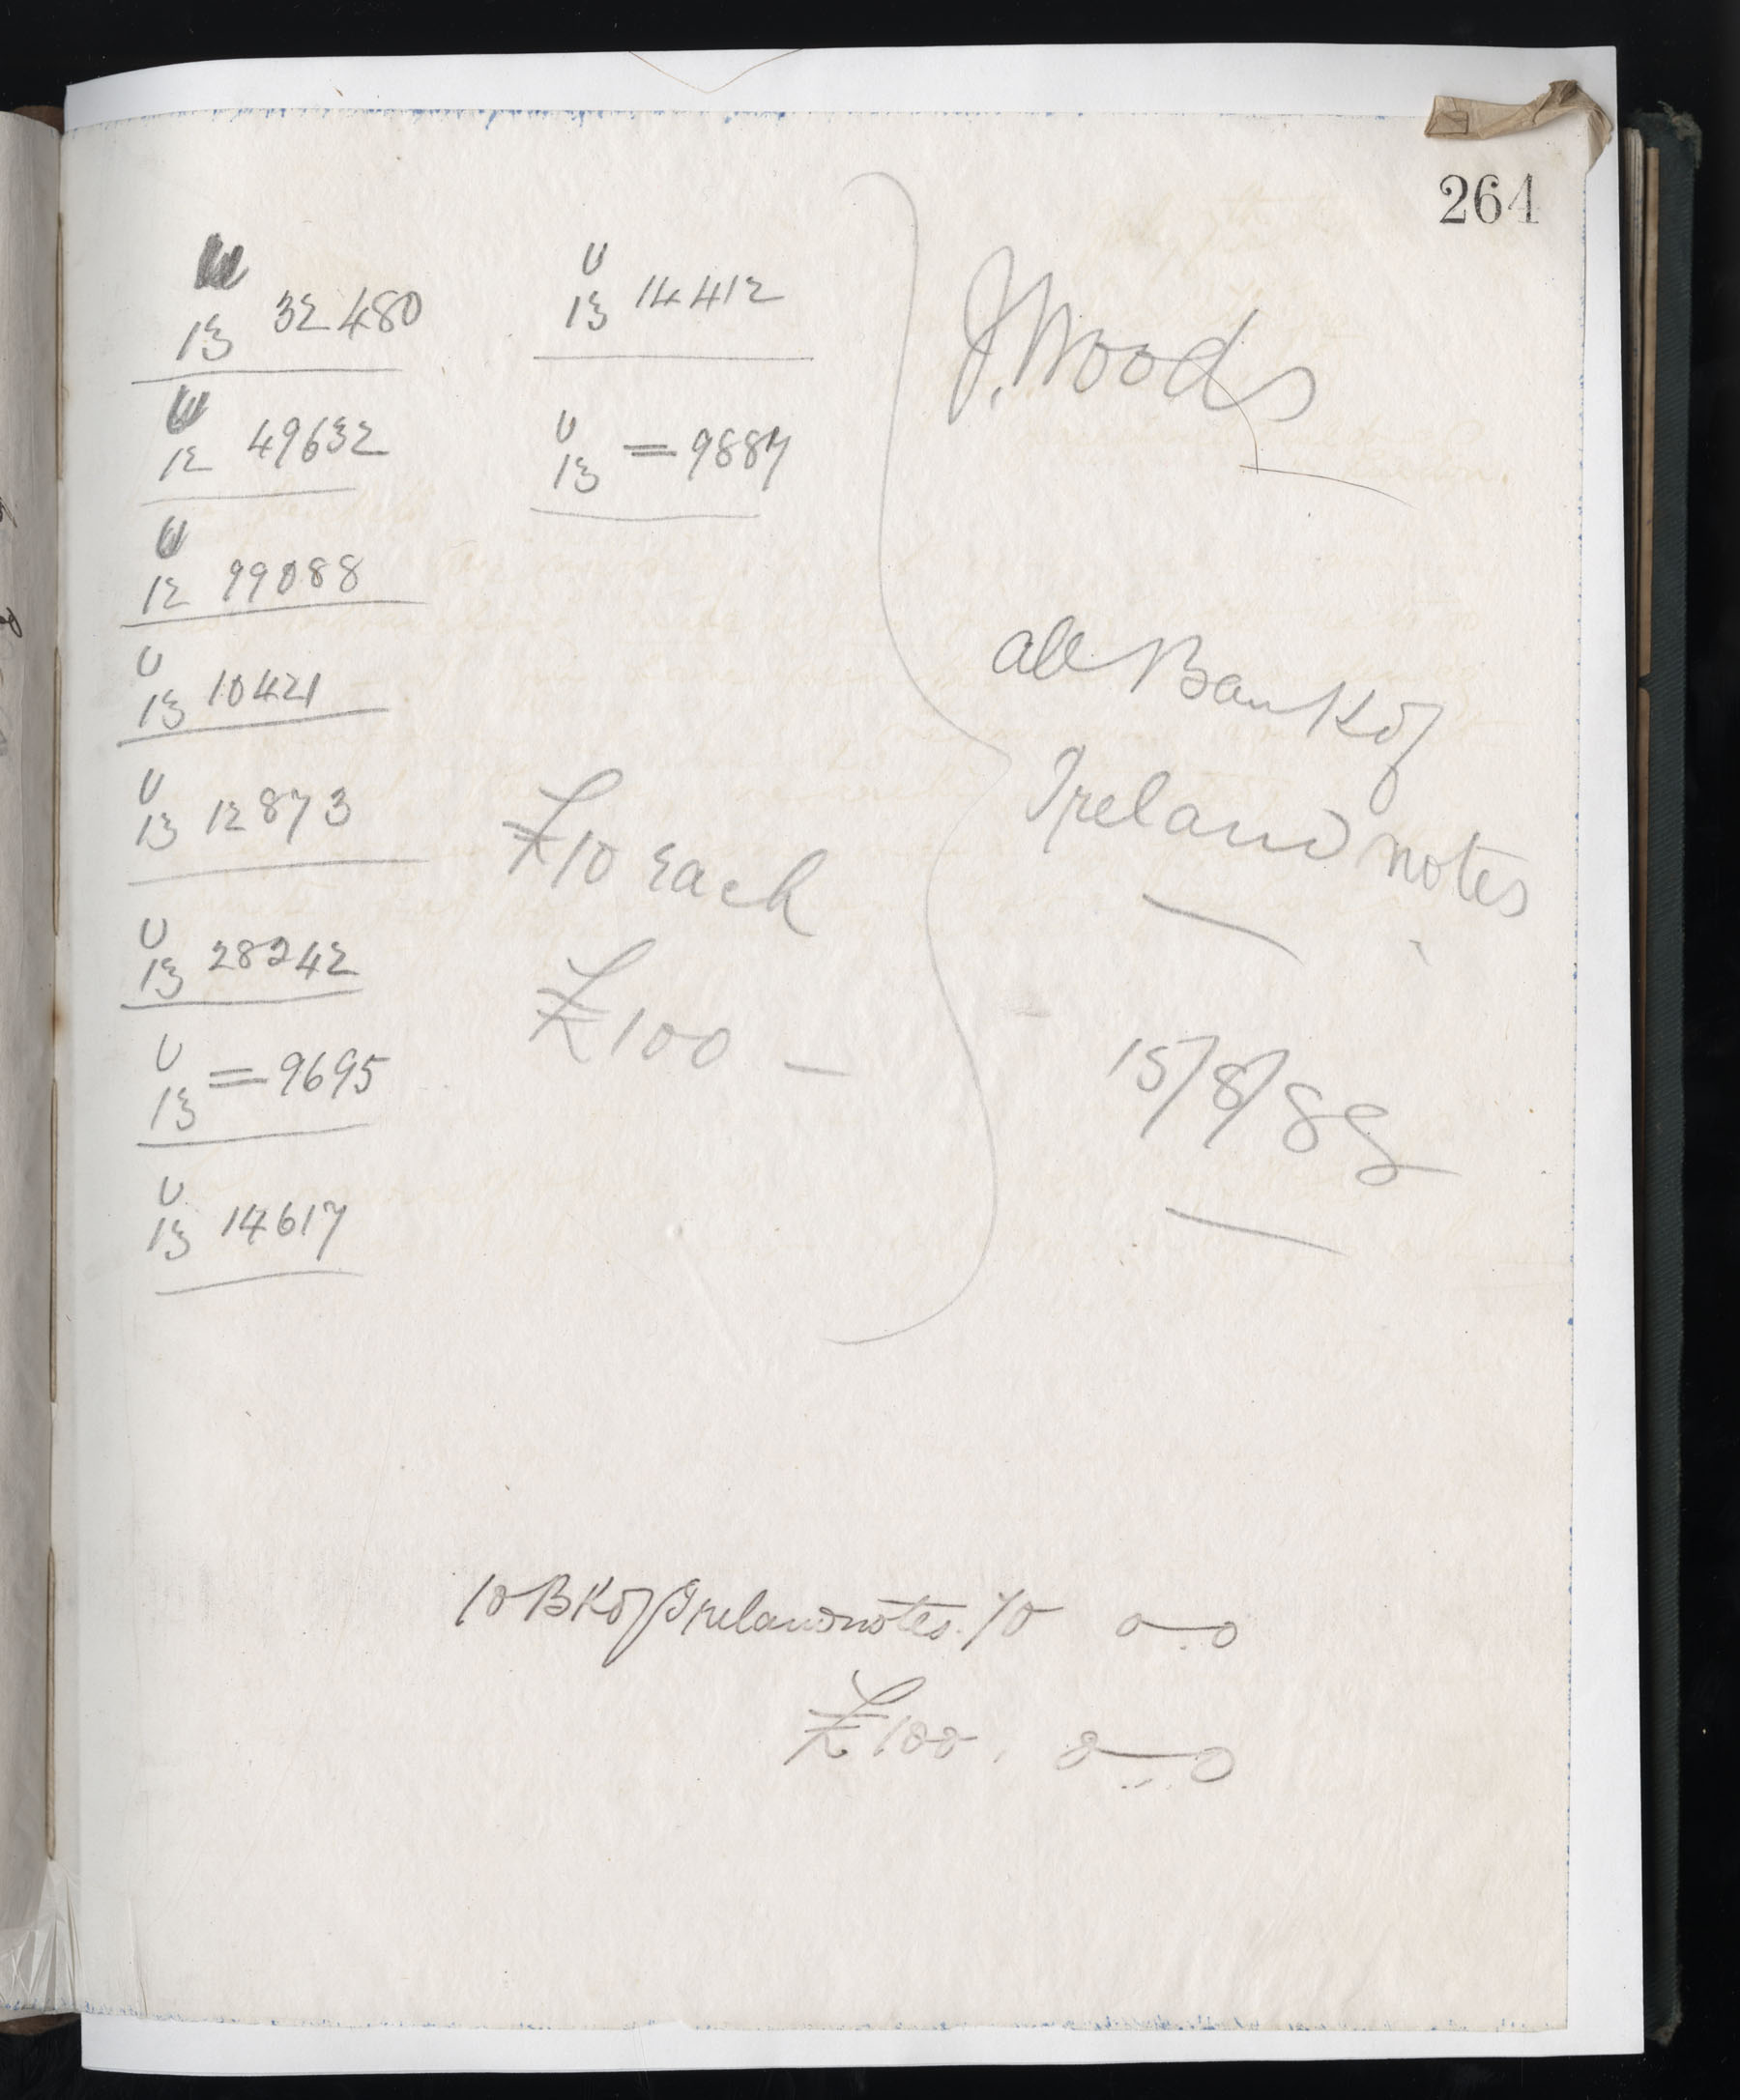 264
U
13 32480
U
12 49632
U
12 99088
U
13 10421
U
13 12873
U
13 28242
U
13 = 9695
U
13 14617
U
13 14412
U
13 = 9887
£10 each
£100 —
J. Woods
all Bank of
Ireland notes
15/8/89
10 Bk of Ireland notes. 10 0-0
£100. 0-0